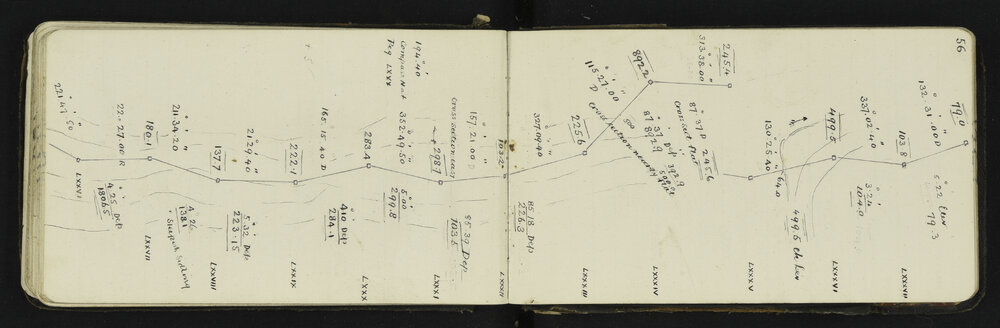 56
79.0
132.31.00 D
5.22 Elev
79.3
LXXXVII
103.8
337.02.40
3.24
104.0
LXXXVI
499.5
499.6
64.0
130.25.40
LXXXV
245.4
313.38.00
87.37 D 245.6
Cross sect flat
87.37 Dep
892.9
392.9
LXXXIV
892.2
115.27.00
D
Cross section
500
225.6
LXXXIII
327.09.40
85.18 Dep
226.3
LXXXII
103.2
157.21.00 D
Cross section east
85.39 Dep
103.5
LXXXI
298.7
194.40
Compass Nat
Peg LXXX
352.49.50
5.00
299.8
LXXX
283.4
165.15.40 D
4.10 Dep
284.1
LXXIX
222.1
21.29.40
5.32 Dep
223.15
LXXVIII
137.7
211.34.20
4.26
138.1
LXXVII
180.1
22.27.00 R
4.25 Dep
180.65
LXXVI
221.47.50